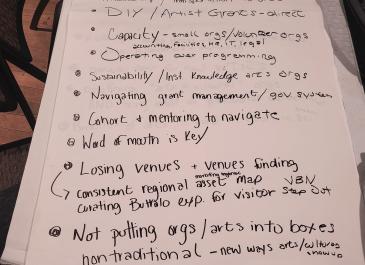 DIY / Artist Grants - direct
Capacity - small orgs/volunteer orgs
accounting, facilities, HR, IT, legal
Operating over programming
Sustainability / Inst Knowledge arts orgs
Navigating grant management/gov. system
Cohort + mentoring to navigate
Word of mouth is key
Losing venues + venues funding
consistent regional asset map VBN
curating Buffalo exp. for visitor Step Out
Not putting orgs/arts into boxes
nontraditional - new ways arts/cultures
show up